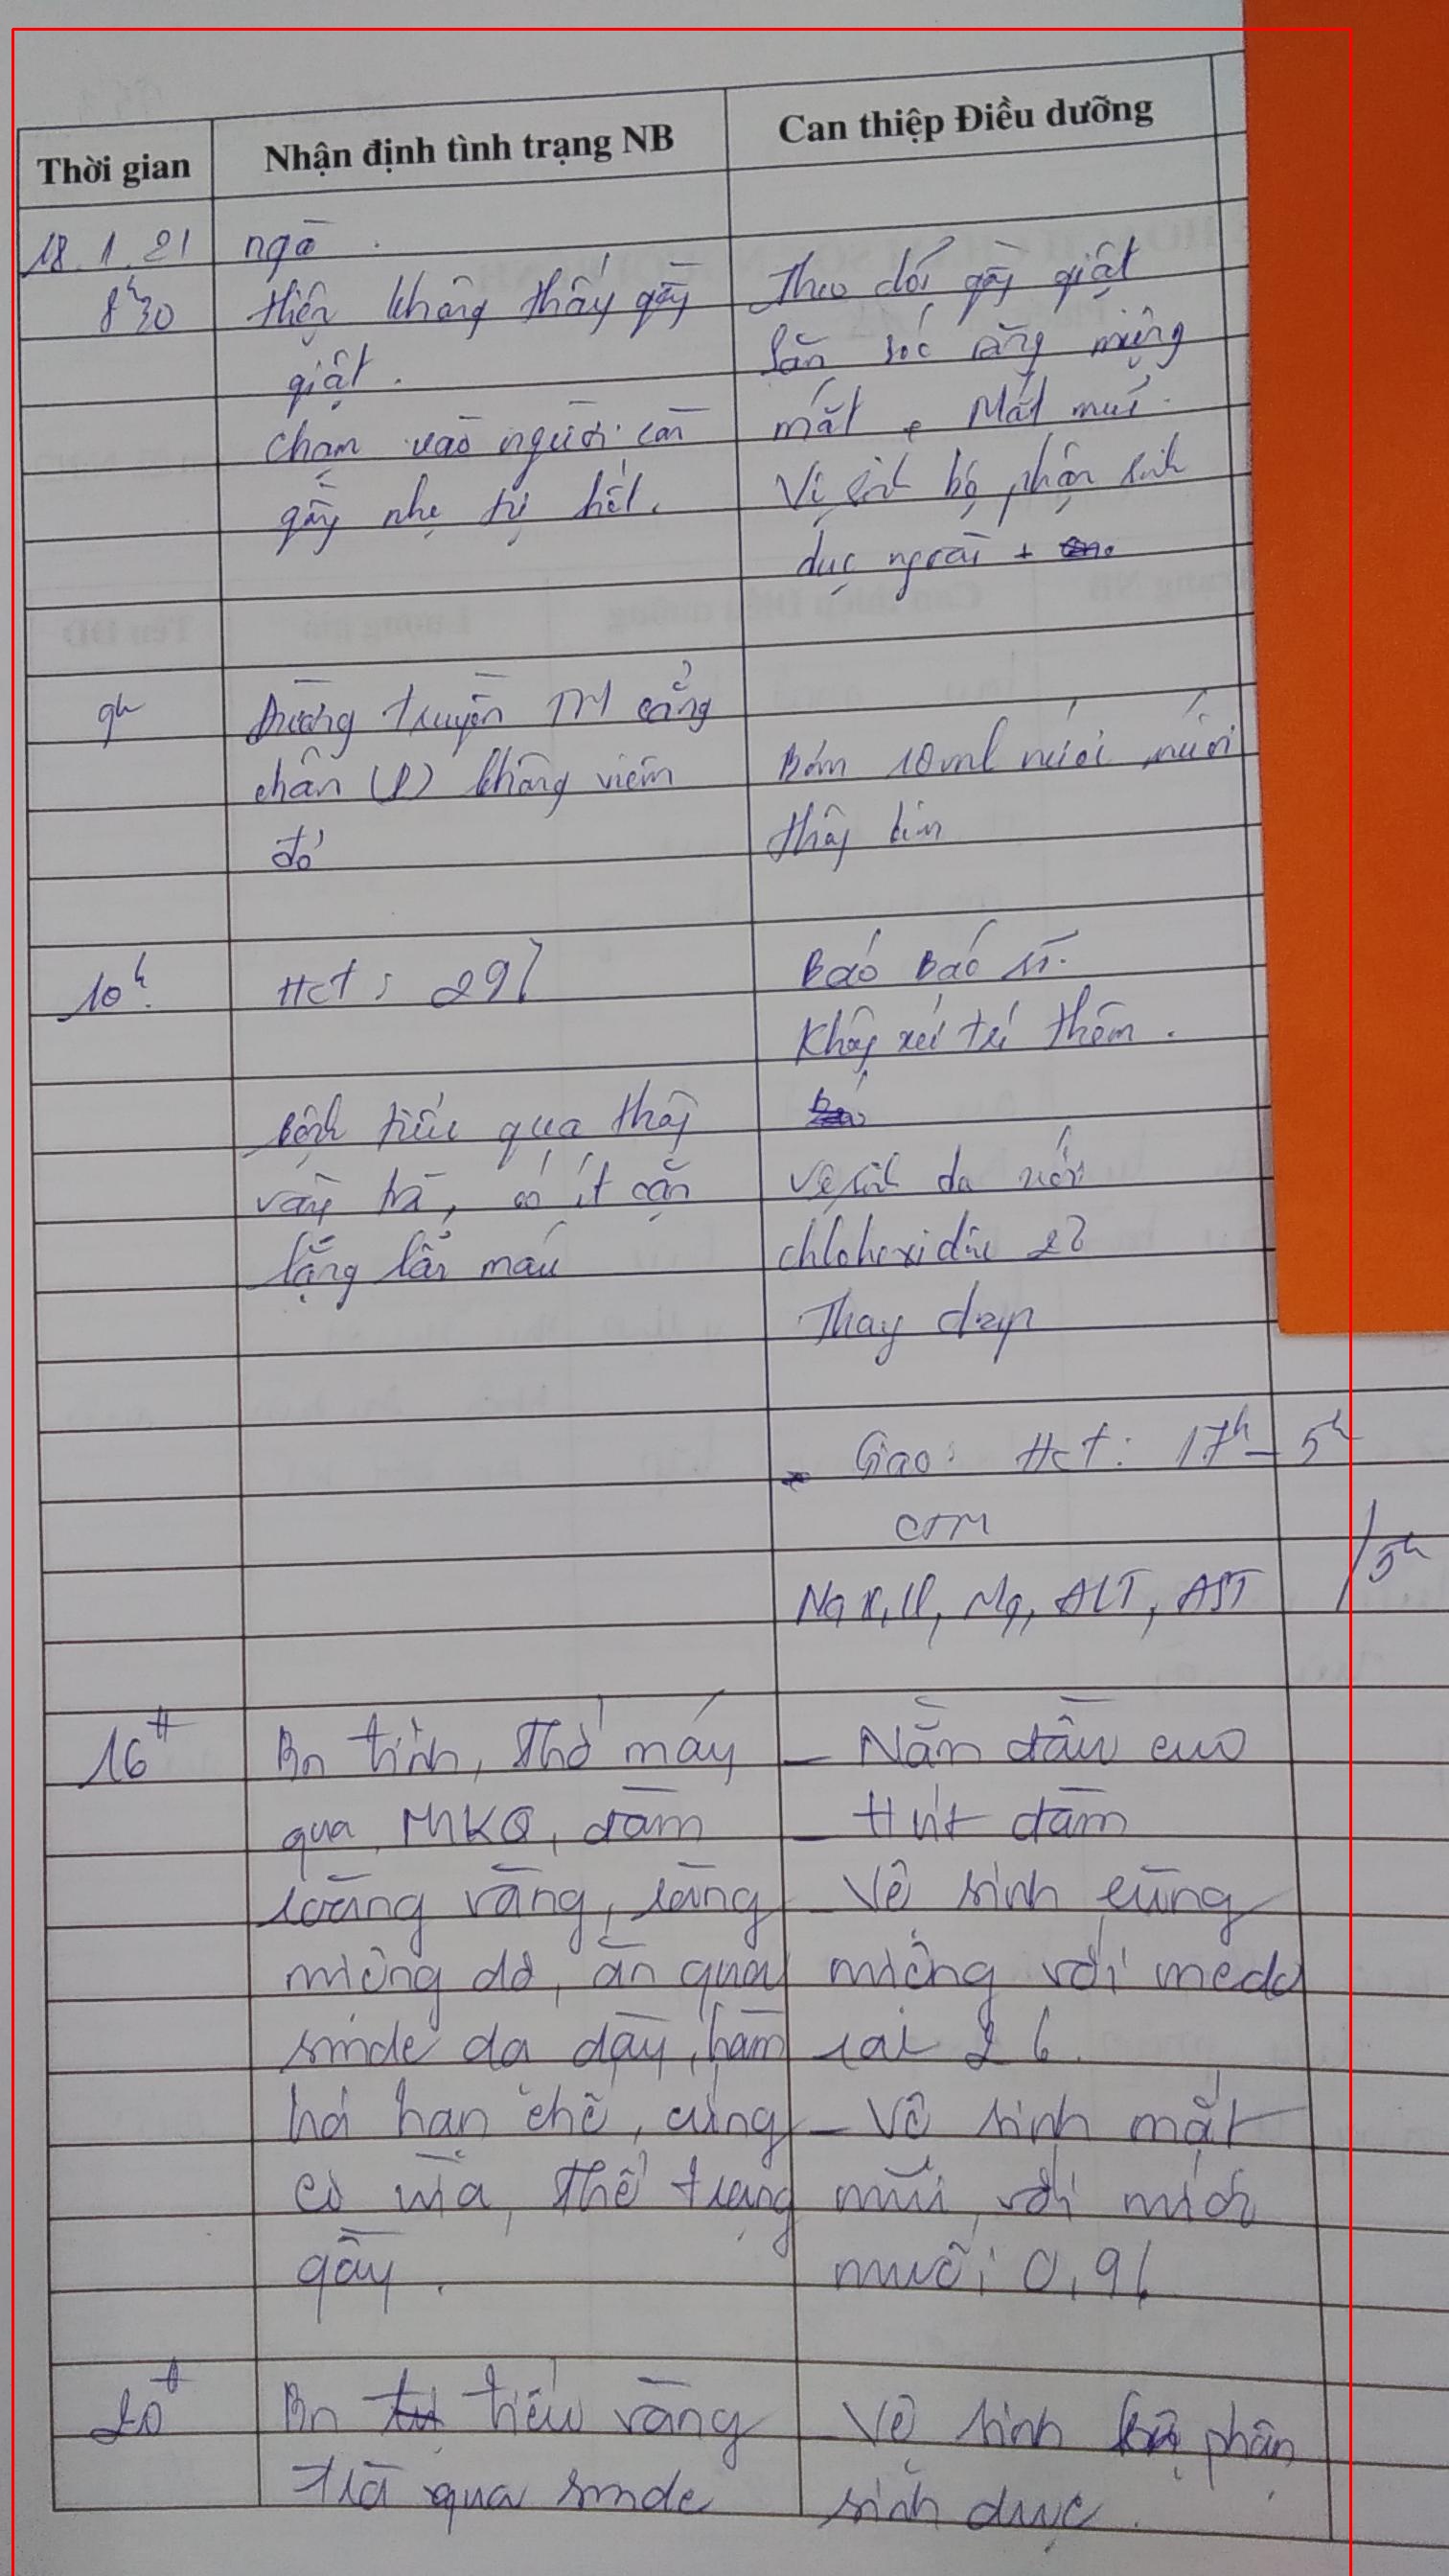 Thời gian
Nhận định tình trạng NB
Can thiệp Điều dưỡng
18.1.21
ngõ.
8h30
Hiện không thấy gồng
giật.
chạm vào người còn
gồng nhẹ tự hết.
Theo dõi gồng giật
Săn sóc răng miệng
mắt, Mắt mũi.
Vệ sinh bộ phận sinh
dục ngoài +
9h
Đường truyền TM cẳng
chân (P) không viêm
đỏ
Bơm 10ml nước muối
thông kim
10h
Hct: 29%
Báo bác sĩ.
Không xử trí thêm.
Bệnh tiểu qua thông
vàng trà, có ít cặn
lắng lẫn máu
Vệ sinh da với
chlohexidine 2%
Thay drap
- Giao: Hct: 17h - 5h
CTM
Na, K, Cl, Mg, ALT, AST / 5h
16h
Bn tỉnh, thở máy
qua MKQ, đàm
loãng vàng, răng
miệng dơ, ăn qua
sonde dạ dày, hàm
há hạn chế, cứng
cơ vừa, thể trạng
gầy.
- Nằm đầu cao
- Hút đàm
- Vệ sinh răng
miệng với medo
ral 2%
- Vệ sinh mắt
mũi với nước
muối 0,9%
20h
Bn tiểu vàng
trà qua sonde
- Vệ sinh bộ phận
sinh dục.